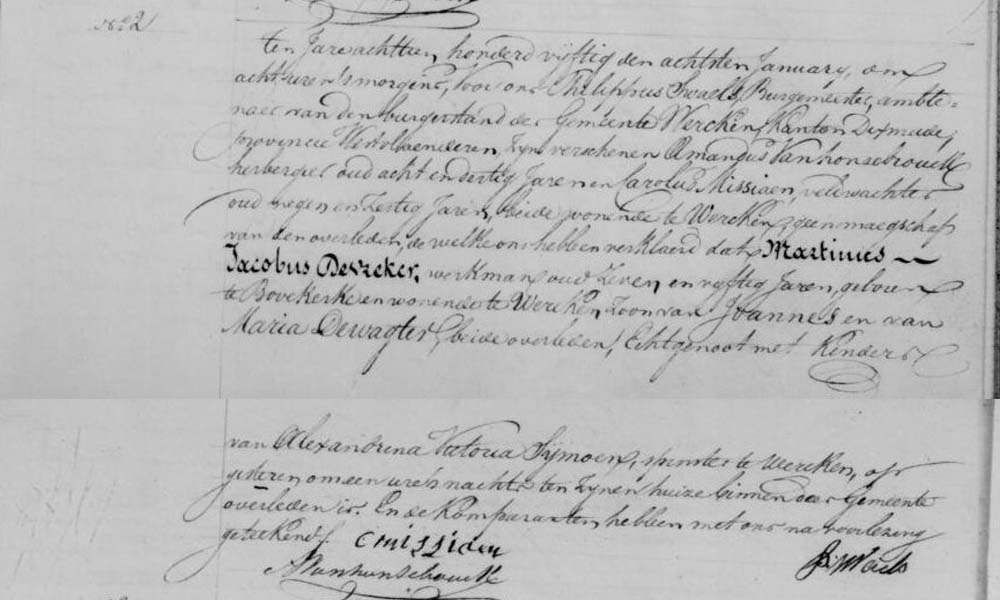 N° 2
ten Jare achttien honderd vijftig den achtsten January, om
acht uren 's morgens, voor ons Philippus Swaels, Burgemeester, ambte=
naer van den burgerstand der Gemeente Wercken, Kanton Dixmude,
provincie Westvlaenderen, zijn verschenen Amandus Vanhonsebrouck
herbergier oud acht en dertig Jaren en Carolus Missiaen, veldwachter
oud negen en zestig Jaren, beide wonende te Wercken, geen maegschap
van den overleden, de welke ons hebben verklaerd dat Martinus
Jacobus Devreker, werkman oud zeven en vyftig Jaren, geboren
te Bovekerke en wonende te Wercken, zoon van Joannes en van
Maria Dewagter, beide overleden, Echtgenoot met Kinders
van Alexandrina Victoria Sijmoen, spinster te Wercken, op
gisteren om een ure 's nachts ten zynen huize binnen deze Gemeente
overleden is. En de Komparanten hebben met ons na voorlezing
geteekend.
C Missiaen
AVanhonsebrouck